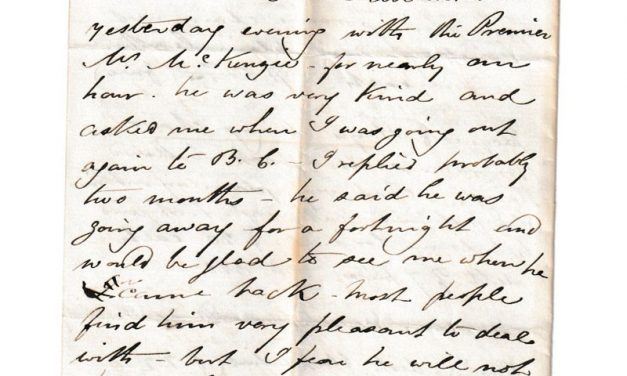 yesterday evening with the Premier
Mr. McKenzie - for nearly an
hour. he was very kind and
asked me when I was going out
again to B.C. - I replied probably
two months - he said he was
going away for a fortnight and
would be glad to see me when he
came back - most people
find him very pleasant to deal
with - but I fear he will not